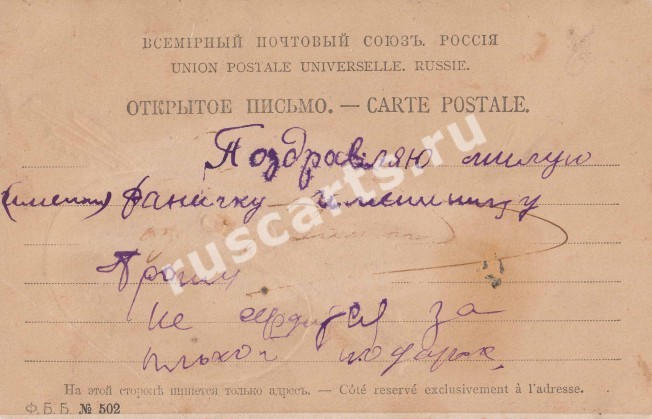 ВСЕМІРНЫЙ ПОЧТОВЫЙ СОЮЗЪ. РОССІЯ
UNION POSTALE UNIVERSELLE. RUSSIE.
ОТКРЫТОЕ ПИСЬМО. — CARTE POSTALE.
Поздравляю милую
Фаничку имениницу
Прошу
не сердится за
плохой подарок
На этой сторонѣ пишется только адресъ. — Côté reservé exclusivement à l'adresse.
Ф. Б. Б. № 502
ruscarts.ru